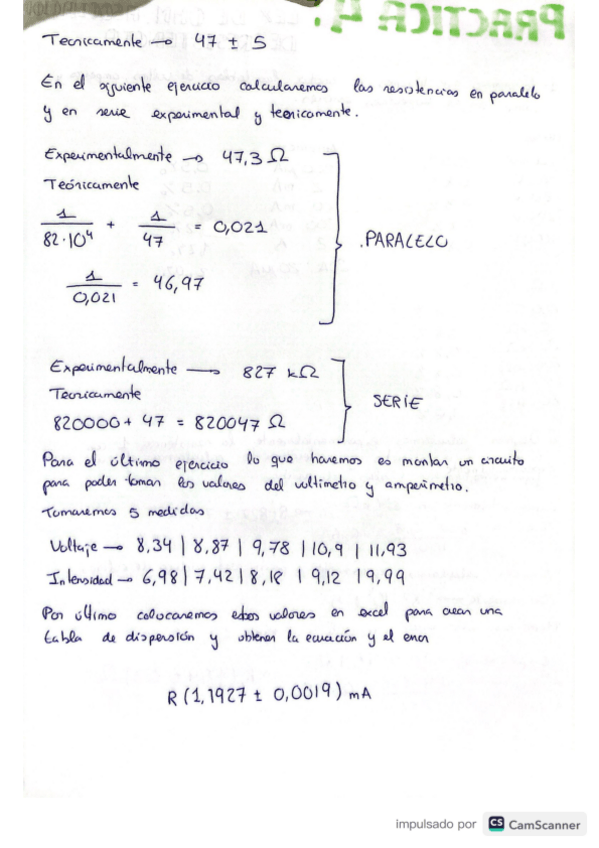 PRACTICA 4:
Teoricamente → 47 ± 5
En el siguiente ejercicio calcularemos las resistencias en paralelo
y en serie experimental y teoricamente.
Experimentalmente → 47,3 Ω
Teóricamente
1/82·10⁴ + 1/47 = 0,021
.PARALELO
1/0,021 = 46,97
Experimentalmente → 827 kΩ
Teoricamente
820000 + 47 = 820047 Ω
SERIE
Para el último ejercicio lo que haremos es montar un circuito
para poder tomar los valores del voltimetro y amperimetro.
Tomaremos 5 medidas
Voltaje → 8,34 | 8,87 | 9,78 | 10,9 | 11,93
Intensidad → 6,98 | 7,42 | 8,18 | 9,12 | 9,99
Por último colocaremos estos valores en excel para crear una
tabla de dispersión y obtener la ecuación y el error
R (1,1927 ± 0,0019) mA
impulsado por CS CamScanner